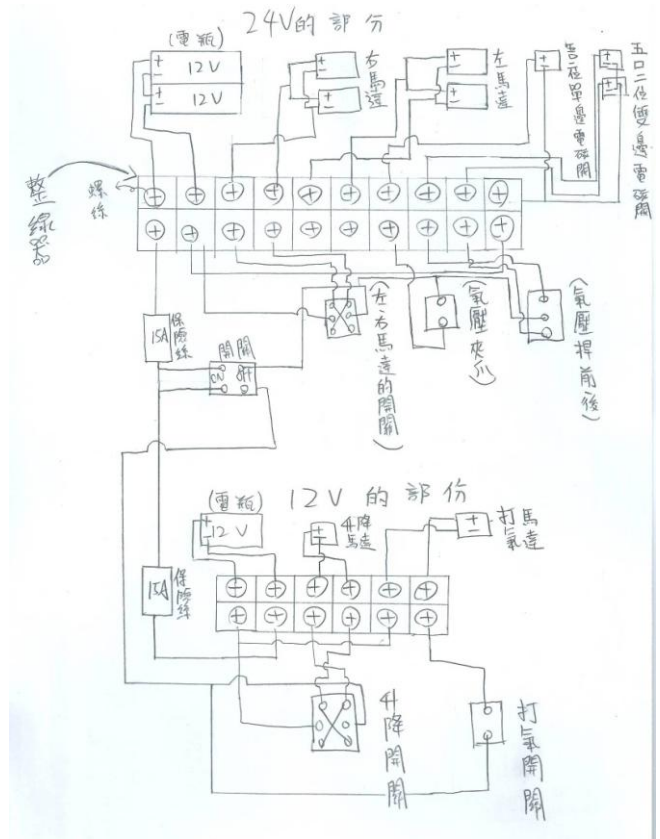 24V的部份
(電瓶)
12V
12V
右馬達
左馬達
單邊電磁閥
五口二位雙邊電磁閥
整線器
螺絲
15A
保險絲
開關
ON OFF
(左右馬達的開關)
(氣壓夾爪)
(氣壓桿前後)
12V的部份
(電瓶)
12V
升降馬達
打氣馬達
15A
保險絲
升降開關
打氣開關